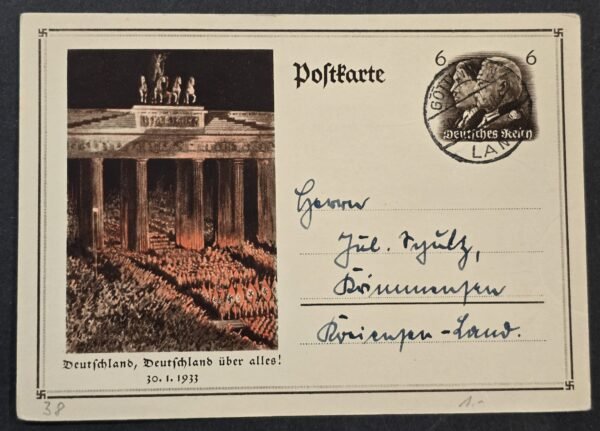 Postkarte
6 6
Deutsches Reich
LAN
Herrn
Jul. Schultz,
Kreiensen-Land.
Deutschland, Deutschland über alles!
30.1.1933
38
1.-